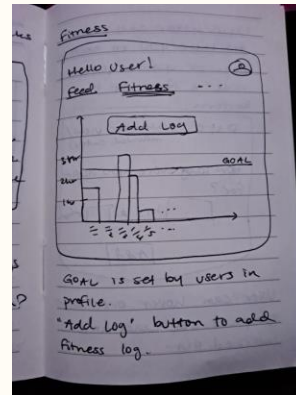 Fitness
Hello User!
Feed Fitness ...
Add Log
GOAL
3hr
2hr
1hr
GOAL is set by users in
profile.
"Add Log" button to add
fitness log.